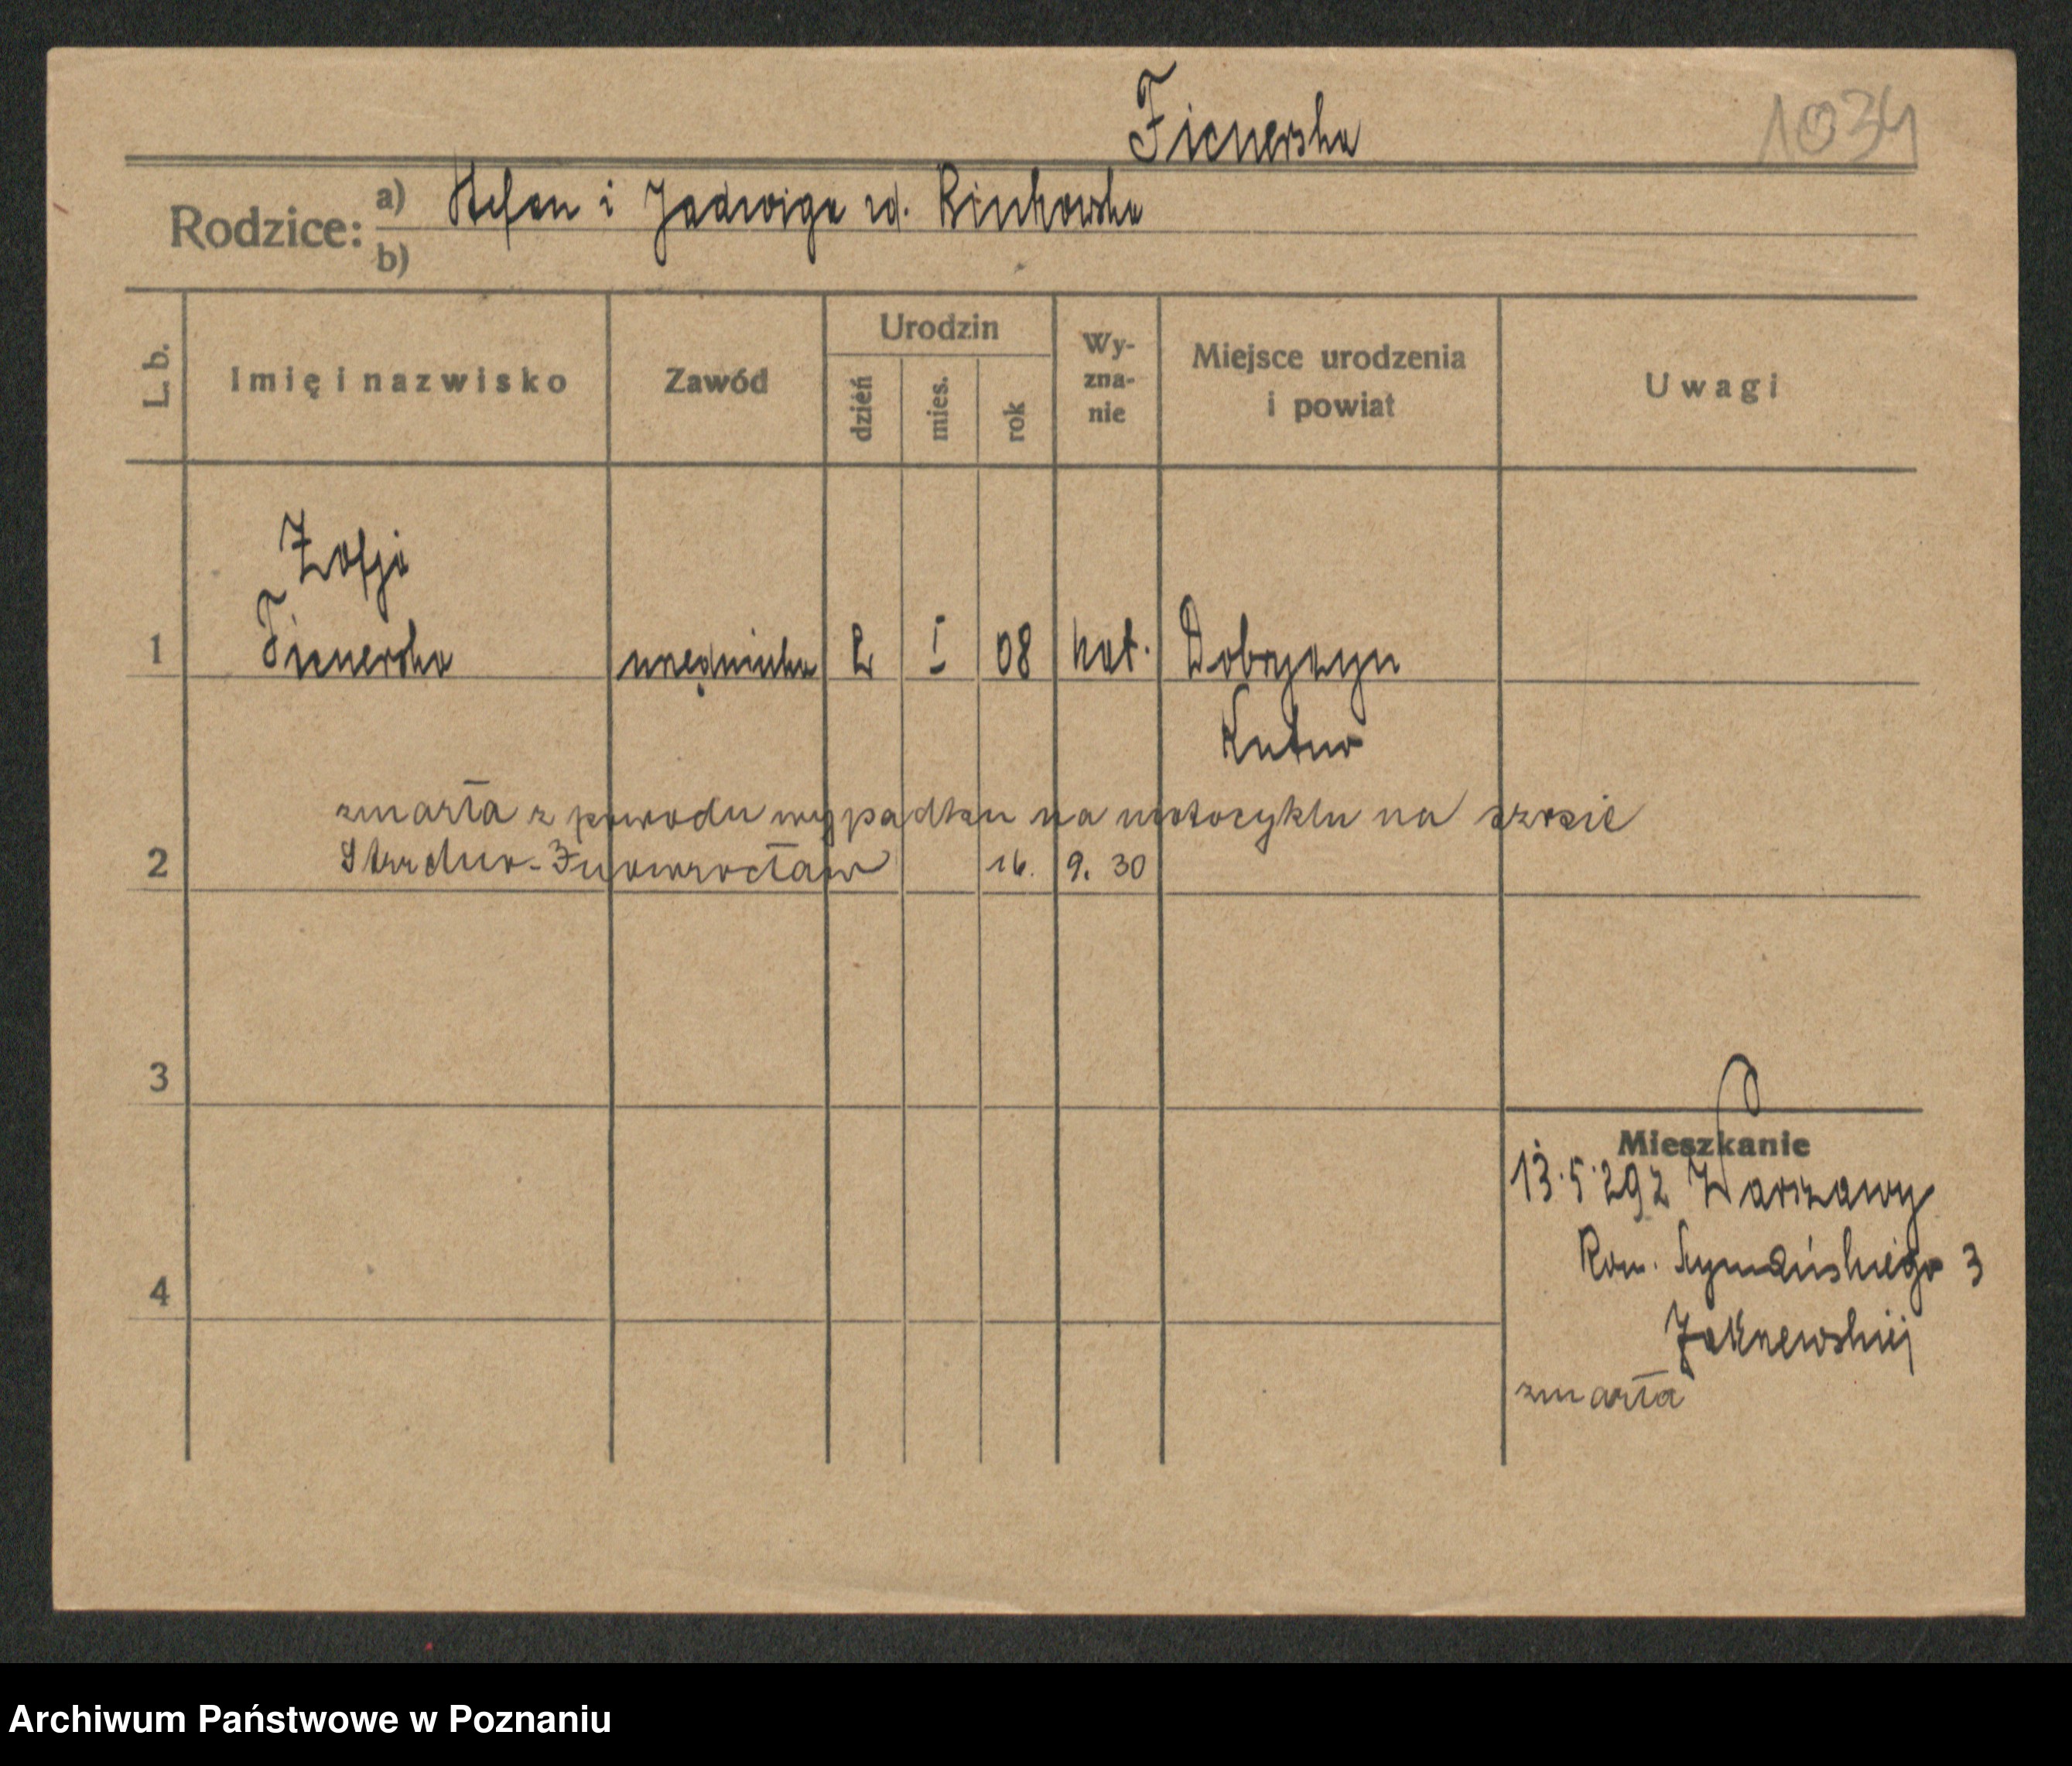 Ficnerska
1034
Rodzice: a) Stefan i Jadwiga rd. Binkowska
b)
L. b.
Imię i nazwisko
Zawód
Urodzin
dzień
mies.
rok
Wy-
zna-
nie
Miejsce urodzenia
i powiat
Uwagi
Zofja
1 Ficnerska urzędniczka 2 I 08 kat. Dobrzyzyn
Kutno
zmarła z powodu wypadku na motocyklu na szosie
2 Strzelno-Inowrocław 16. 9. 30
3
Mieszkanie
13.5.29 z Warszawy
Rom. Szymańskiego 3
4
zmarła
Archiwum Państwowe w Poznaniu